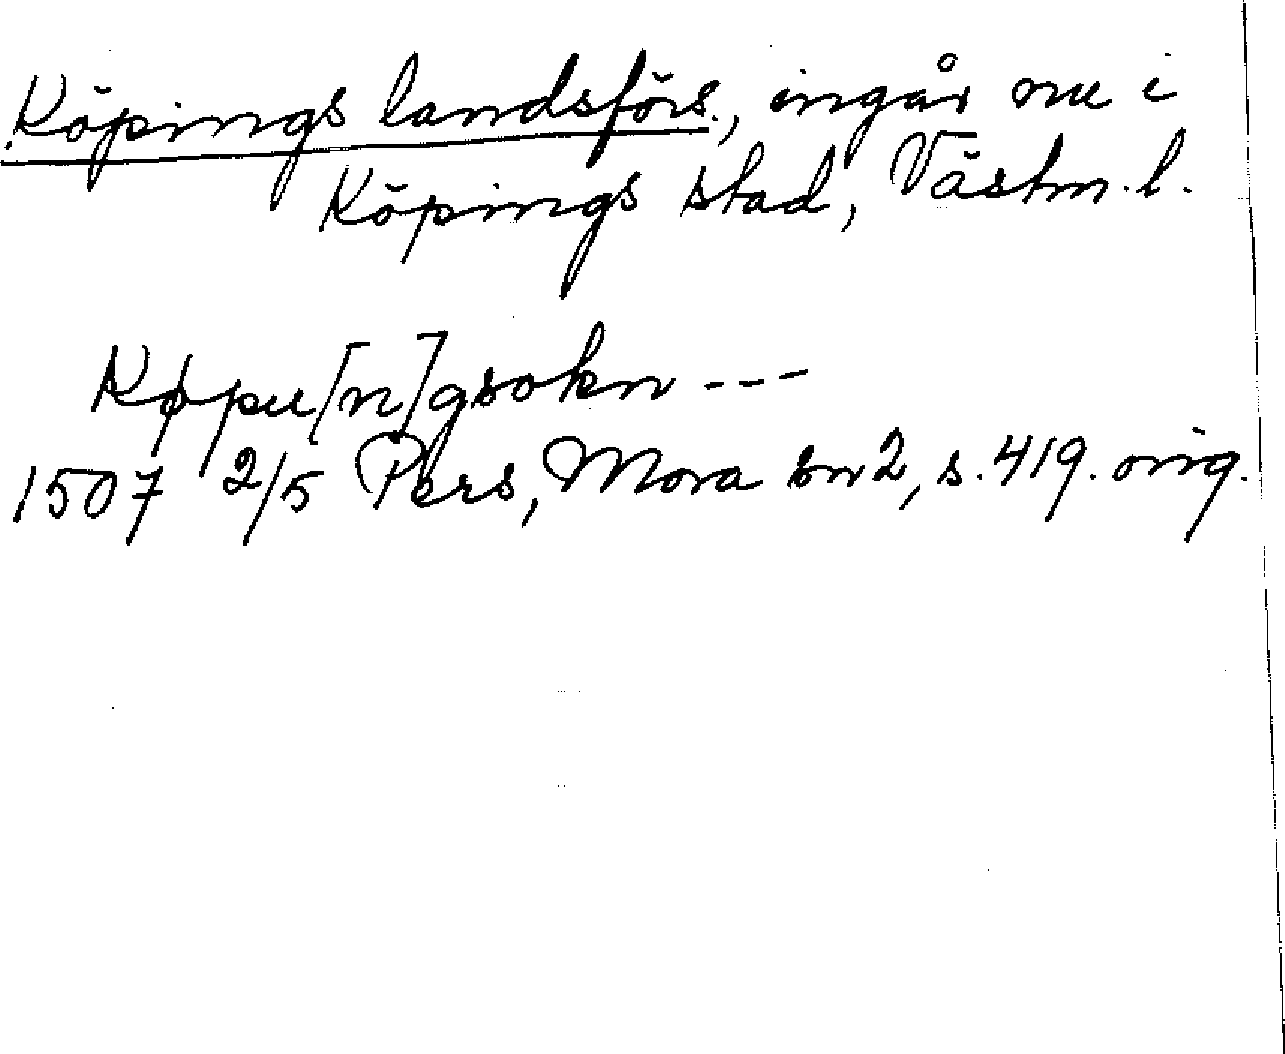 Köpings landsförs., ingår nu i
Köpings stad, Västm.l.
Køpu[n]gsokn ---
1507 2/5 Pers, Mora bn 2, s. 419. orig.